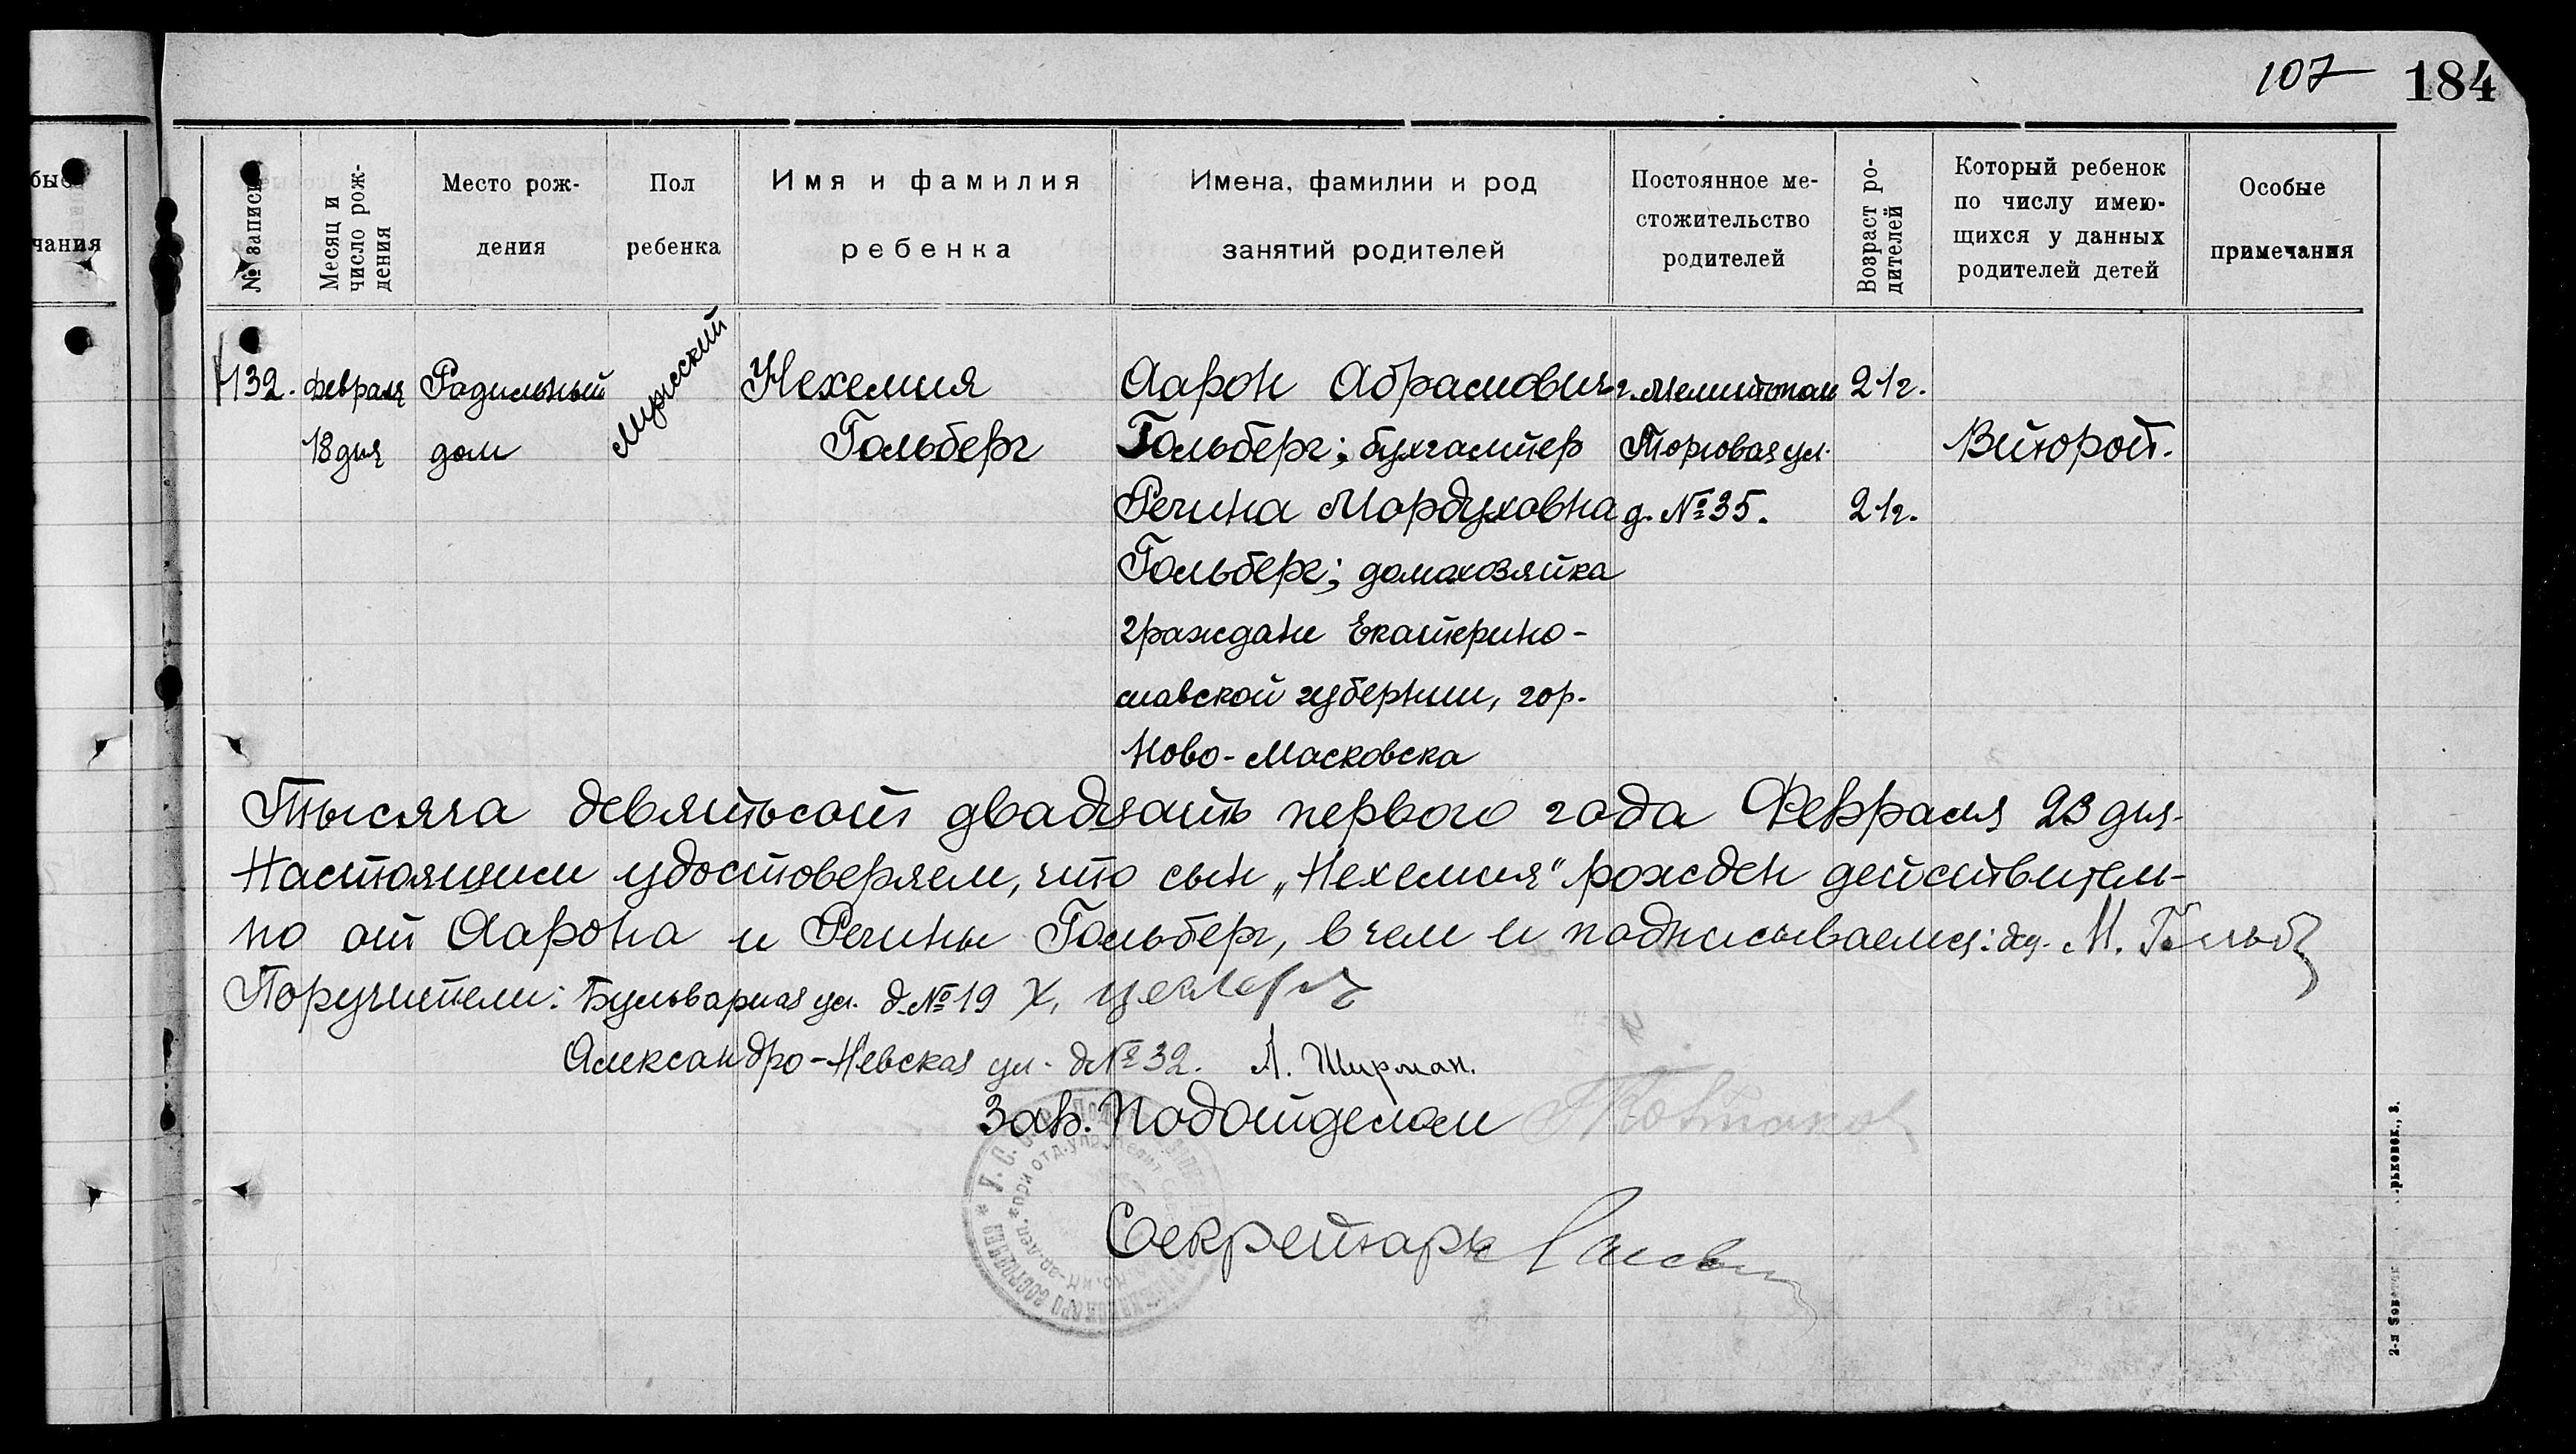 107 184
бые
чания
№ записи
Месяц и
число рож-
дения
Место рож-
дения
Пол
ребенка
Имя и фамилия
ребенка
Имена, фамилии и род
занятий родителей
Постоянное ме-
стожительство
родителей
Возраст ро-
дителей
Который ребенок
по числу имею-
щихся у данных
родителей детей
Особые
примечания
132. февраля Радильный Мужской Нехемия Аарон Абрамович г. Мелитопол 21г.
18 дня дом Гольберг Гольберг; бухгалтер Торговая ул. Второй.
Регина Мордуховна д. №35. 21г.
Гольберг; домохозяйка
граждане Екатерино-
славской губернии, гор.
Ново-Московска
Тысяча девятьсот двадцать первого года Февраля 23 дня.
Настоящим удостоверяем, что сын „Нехемия" рожден действитель-
но от Аарона и Регины Гольберг, в чем и подписываемся: М.
Поручители: Бульварная ул. д. №19 Х.
Александро-Невская ул. д №32. А. Ширман.
Зав. Подотделом
Секретарь